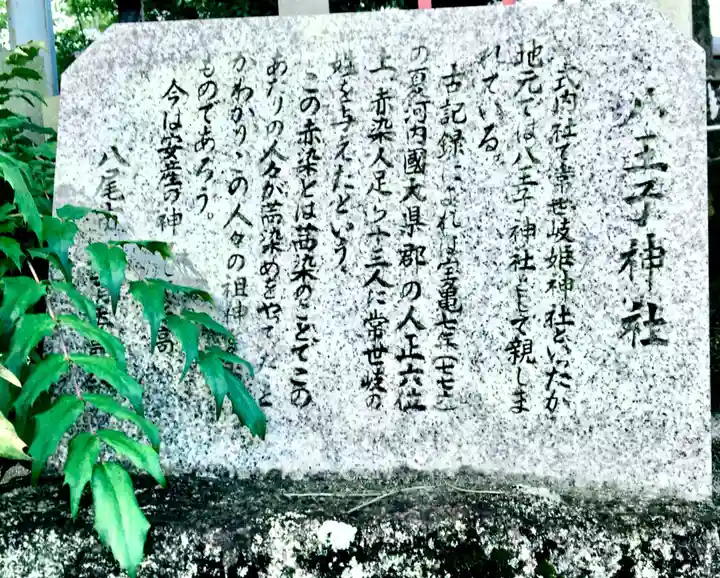 八王子神社
式内社で常世岐姫神社といったが
地元では八王子神社として親しま
れている。
古記録によれば宝亀七年(七七六)
の夏河内國大県郡の人正六位
上赤染人足ら十三人に常世岐の
姓を与えたという。
この赤染とは茜染のことでこの
あたりの人々が茜染めをやって
かわかり、この人々の祖神
ものであろう。
今は安産の神 高
八尾市